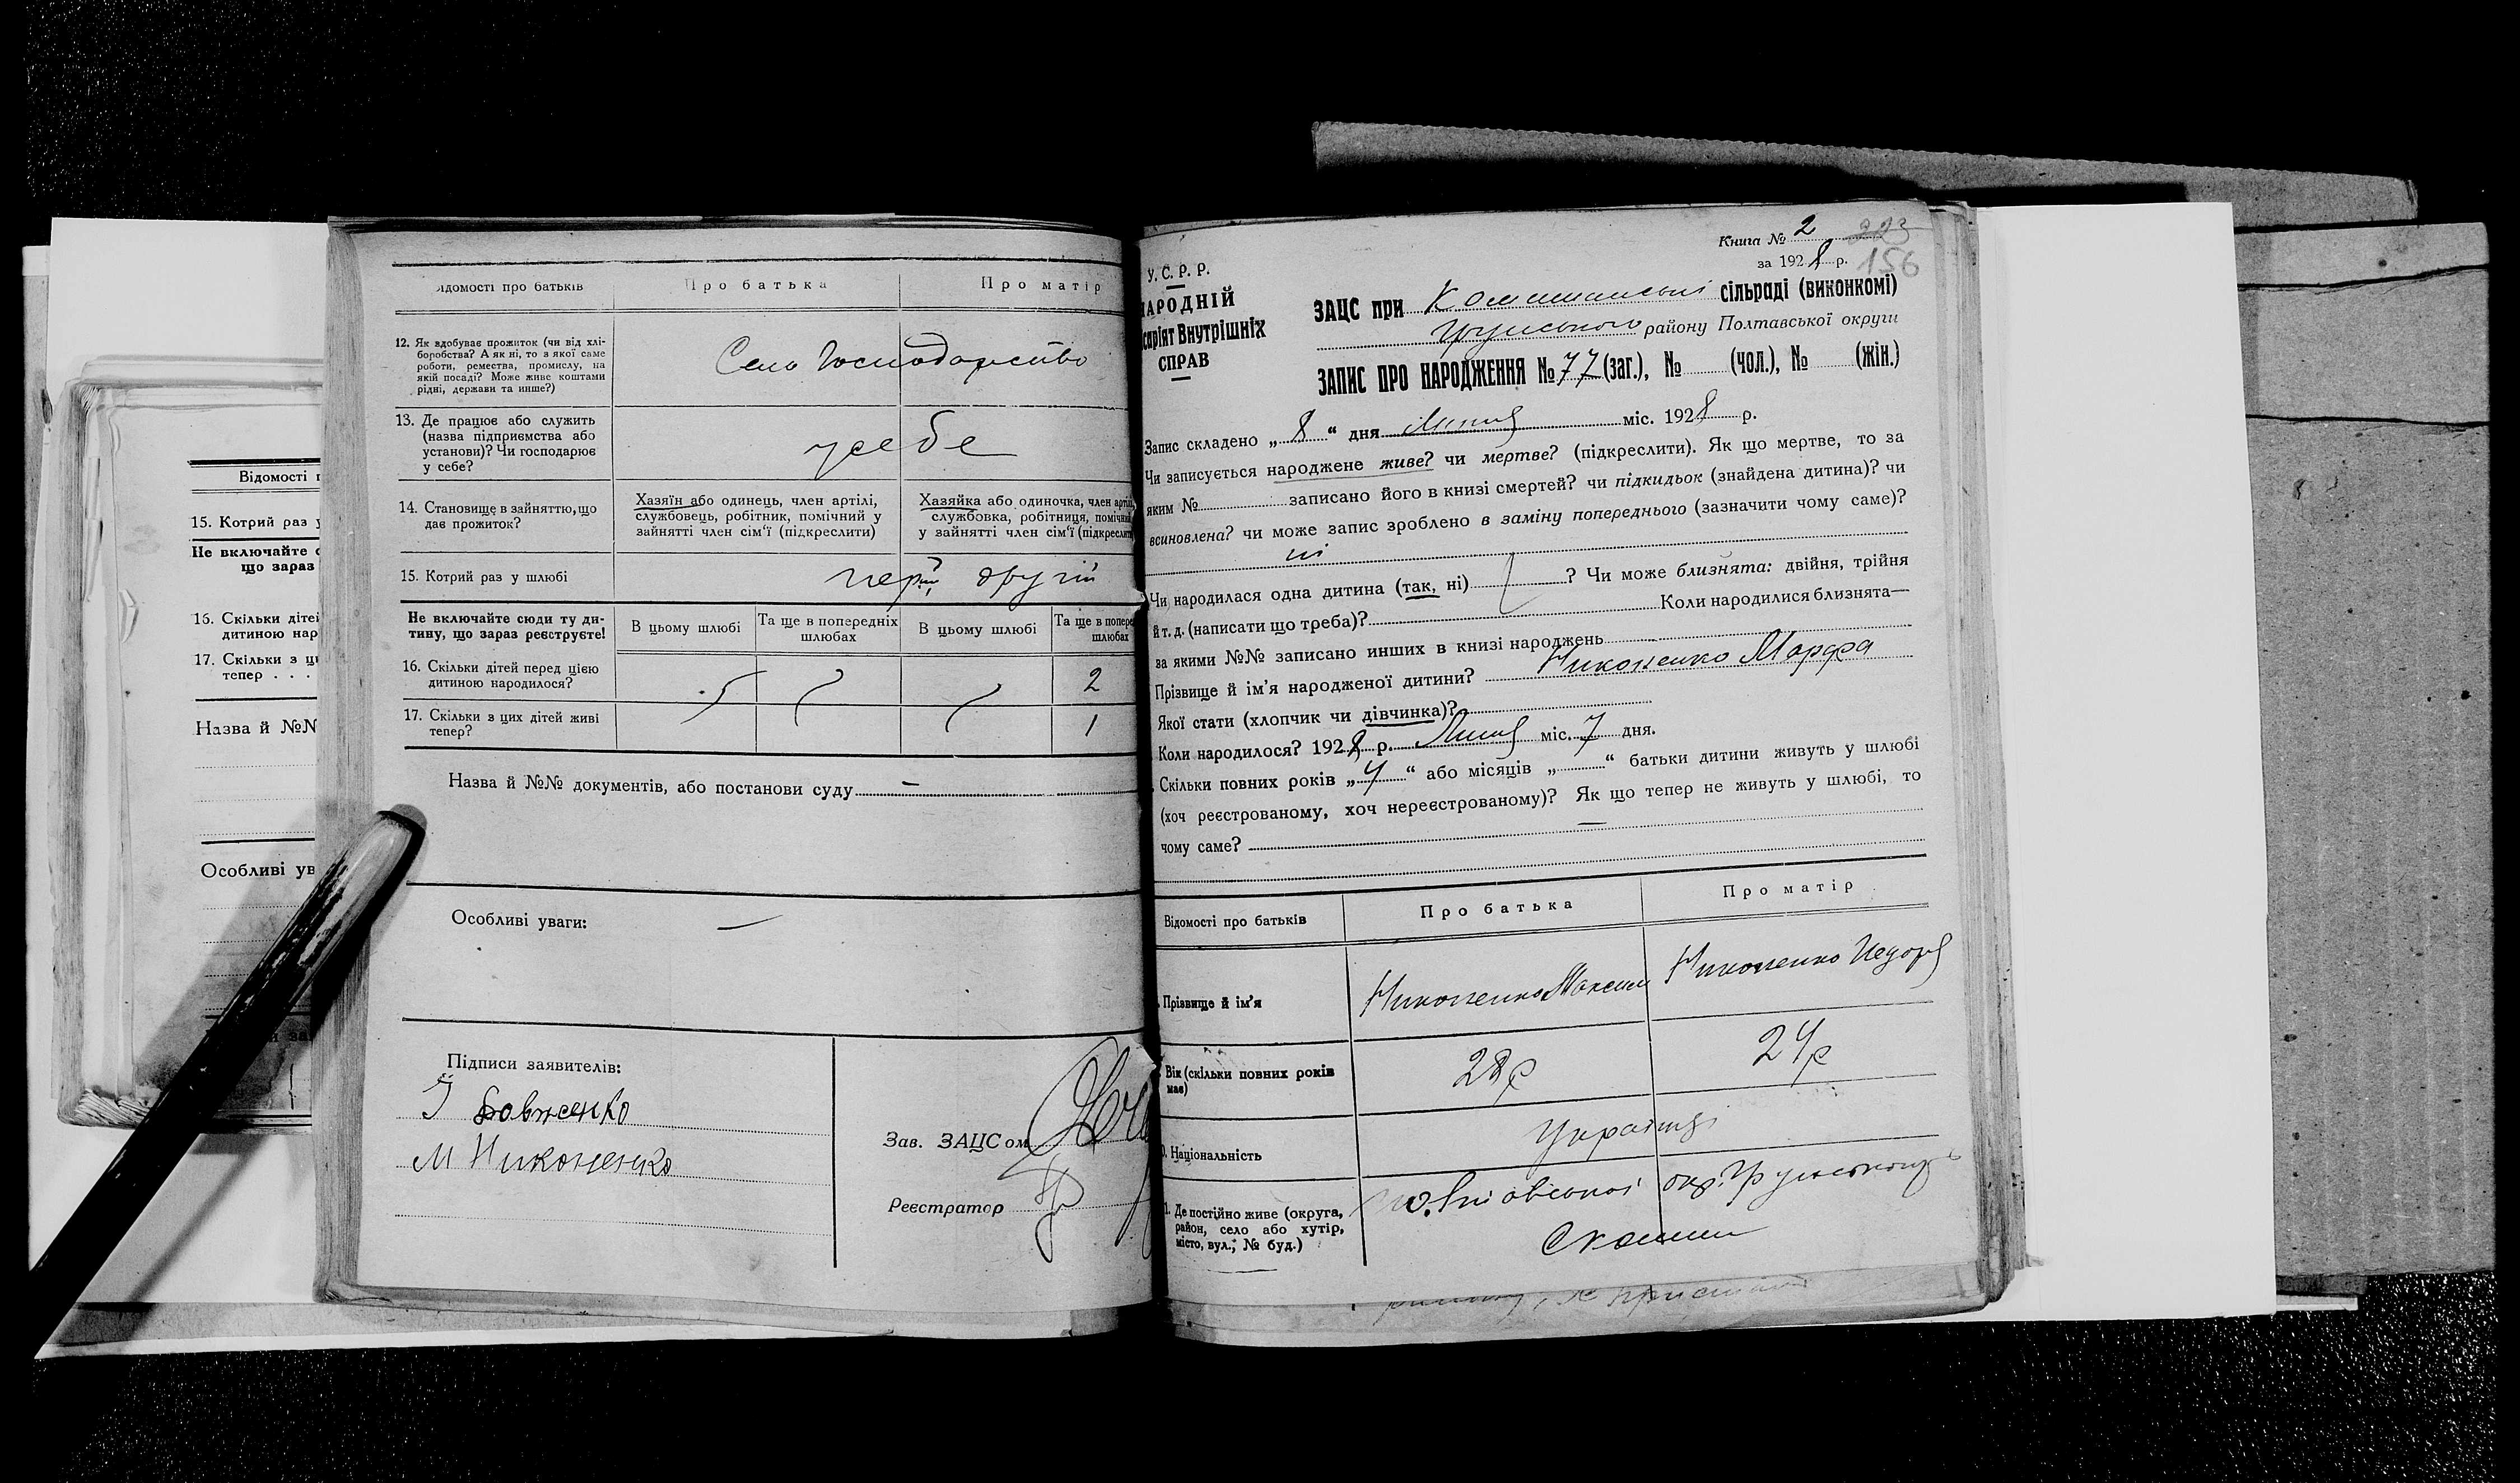 Відомості п
15. Котрий раз у
Не включайте с
що зараз
16. Скільки дітей
дитиною нар
17. Скільки з ц
тепер . . .
Назва й №№
Особливі ув
Про батька
Про матір
12. Як здобуває прожиток (чи від хлі-
боробства? А як ні, то з якої саме
роботи, ремества, промислу, на
якій посаді? Може живе коштами
рідні, держави та инше?)
Сель Господарство
13. Де працює або служить
(назва підприємства або
установи)? Чи господарює
у себе?
у себе
14. Становище в зайняттю, що
дає прожиток?
Хазяїн або одинець, член артілі,
службовець, робітник, помічний у
зайнятті член сім'ї (підкреслити)
Хазяйка або одиночка, член артіл
службовка, робітниця, помічни
у зайнятті член сім'ї (підкреслити
15. Котрий раз у шлюбі
другий
Не включайте сюди ту ди-
тину, що зараз реєструєте!
В цьому шлюбі
Та ще в попередніх
шлюбах
В цьому шлюбі
Та ще в попере
шлюбах
16. Скільки дітей перед цією
дитиною народилося?
2
17. Скільки з цих дітей живі
тепер?
1
Назва й №№ документів, або постанови суду —
Особливі уваги: —
Підписи заявителів:
Довженко
М Никоненко
Зав. ЗАЦСом
Реєстратор
Книга № 2 223
за 1928 р. 156
У. С. Р. Р.
НАРОДНІЙ
саріят Внутрішніх
СПРАВ
ЗАЦС при Комишанські сільраді (виконкомі)
Грунського району Полтавської округи
ЗАПИС ПРО НАРОДЖЕННЯ № 77 (заг.), № (чол.), № (жін.)
Запис складено „ 8 “ дня Липня міс. 1928 р.
Чи записується народжене живе? чи мертве? (підкреслити). Як що мертве, то за
яким № записано його в книзі смертей? чи підкидьок (знайдена дитина)? чи
всиновлена? чи може запис зроблено в заміну попереднього (зазначити чому саме)?
ні
Чи народилася одна дитина (так, ні) ? Чи може близнята: двійня, трійня
й т. д. (написати що треба)? Коли народилися близнята—
за якими №№ записано инших в книзі народжень
Прізвище й ім'я народженої дитини? Никоненко Марфа
Якої стати (хлопчик чи дівчинка)?
Коли народилося? 1928 р. Липня міс. 7 дня.
Скільки повних років „ 4 “ або місяців „ “ батьки дитини живуть у шлюбі
(хоч реєстрованому, хоч нереєстрованому)? Як що тепер не живуть у шлюбі, то
чому саме? —
Відомості про батьків
Про батька
Про матір
Прізвище й ім'я
Никоненко Максим
Никоненко
Вік (скільки повних років
має)
28 р
24 р
Національність
Українці
Де постійно живе (округа,
район, село або хутір,
місто, вул.; № буд.)
окр. Грунського